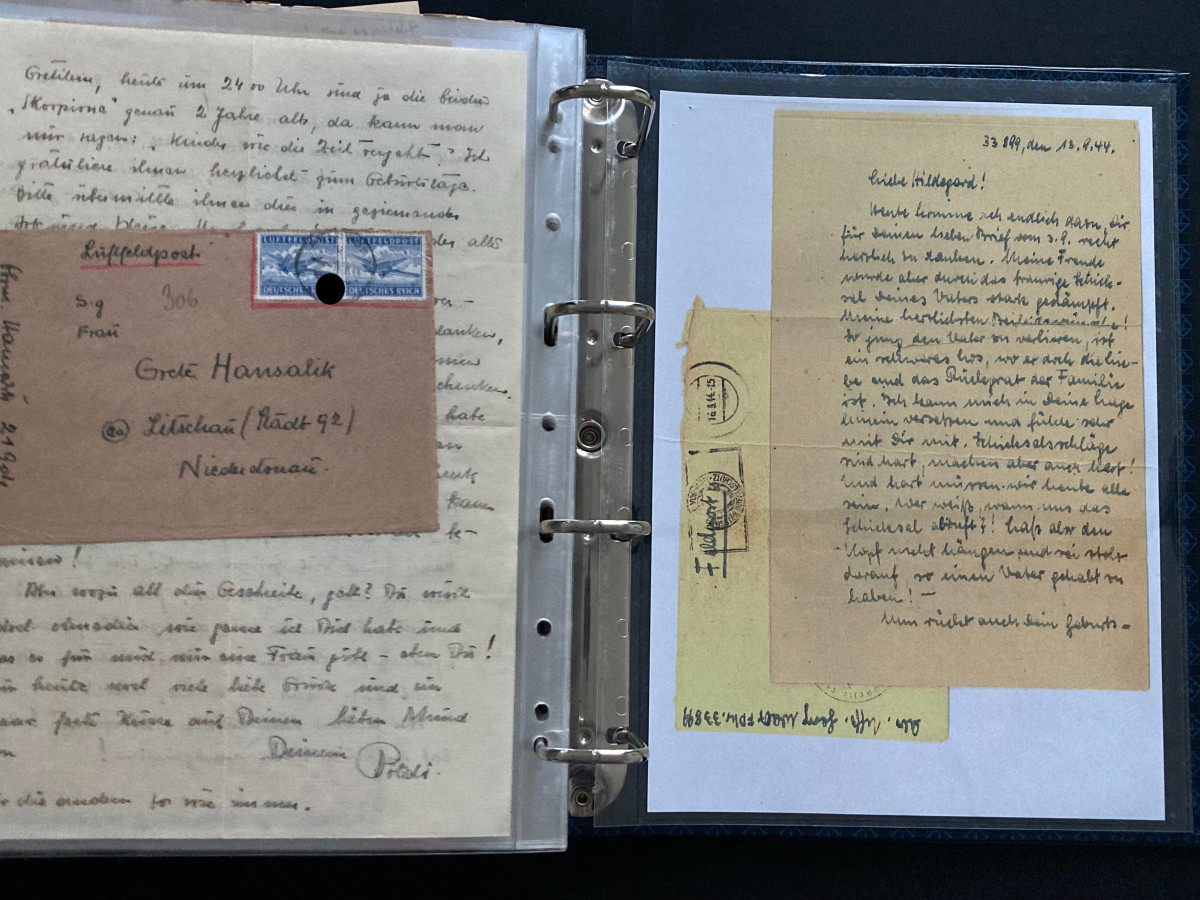 Gretilein, heute um 24 00 Uhr sind ja die beiden
„Skorpione" genau 2 Jahre alt, da kann man
nur sagen: „Kinder wie die Zeit vergeht". Ich
gratuliere ihnen herzlichst zum Geburtstage.
Bitte übermittle ihnen dies in geziemender
alles
danken,
schenken.
habe
kann
be-
Aber wozu all dies Geschreibe, gelt? Du weißt
ohnedies wie gerne ich Dich habe und
es für mich nur eine Frau gibt – eben Du!
heute noch viele liebe Grüsse und ein
paar feste Küsse auf Deinen lieben Mund
Deinem Poldi.
die anderen so wie immer.
Luftfeldpost
LUFTFELDPOST LUFTFELDPOST
DEUTSCHES REICH DEUTSCHES REICH
S.g 306
Frau
Greta Hansalik
Litschau (Stadt 92)
Niederdonau.
33 899, den 13.9.44.
Liebe Hildegard!
Heute komme ich endlich dazu, Dir
für Deinen lieben Brief vom 3.9. recht
herzlich zu danken. Meine Freude
wurde aber durch das traurige Schick-
sal Deines Vaters stark gedämpft.
Meine herzlichsten
So jung den Vater zu verlieren, ist
ein schweres Los, wo er doch die Lie-
be und das Rückgrat der Familie
ist. Ich kann mich in Deine Lage
hinein versetzen und fühle sehr
mit Dir mit. Schicksalsschläge
sind hart, machen aber auch hart!
Und hart müssen wir heute alle
sein. Wer weiß, wann uns das
Schicksal abruft?! Laß also den
Kopf nicht hängen und sei stolz
darauf, so einen Vater gehabt zu
haben! –
Nun rückt auch Dein Geburts-
16.9.44-15
Feldpost
Abs. Uffz. Georg FPNr. 33899